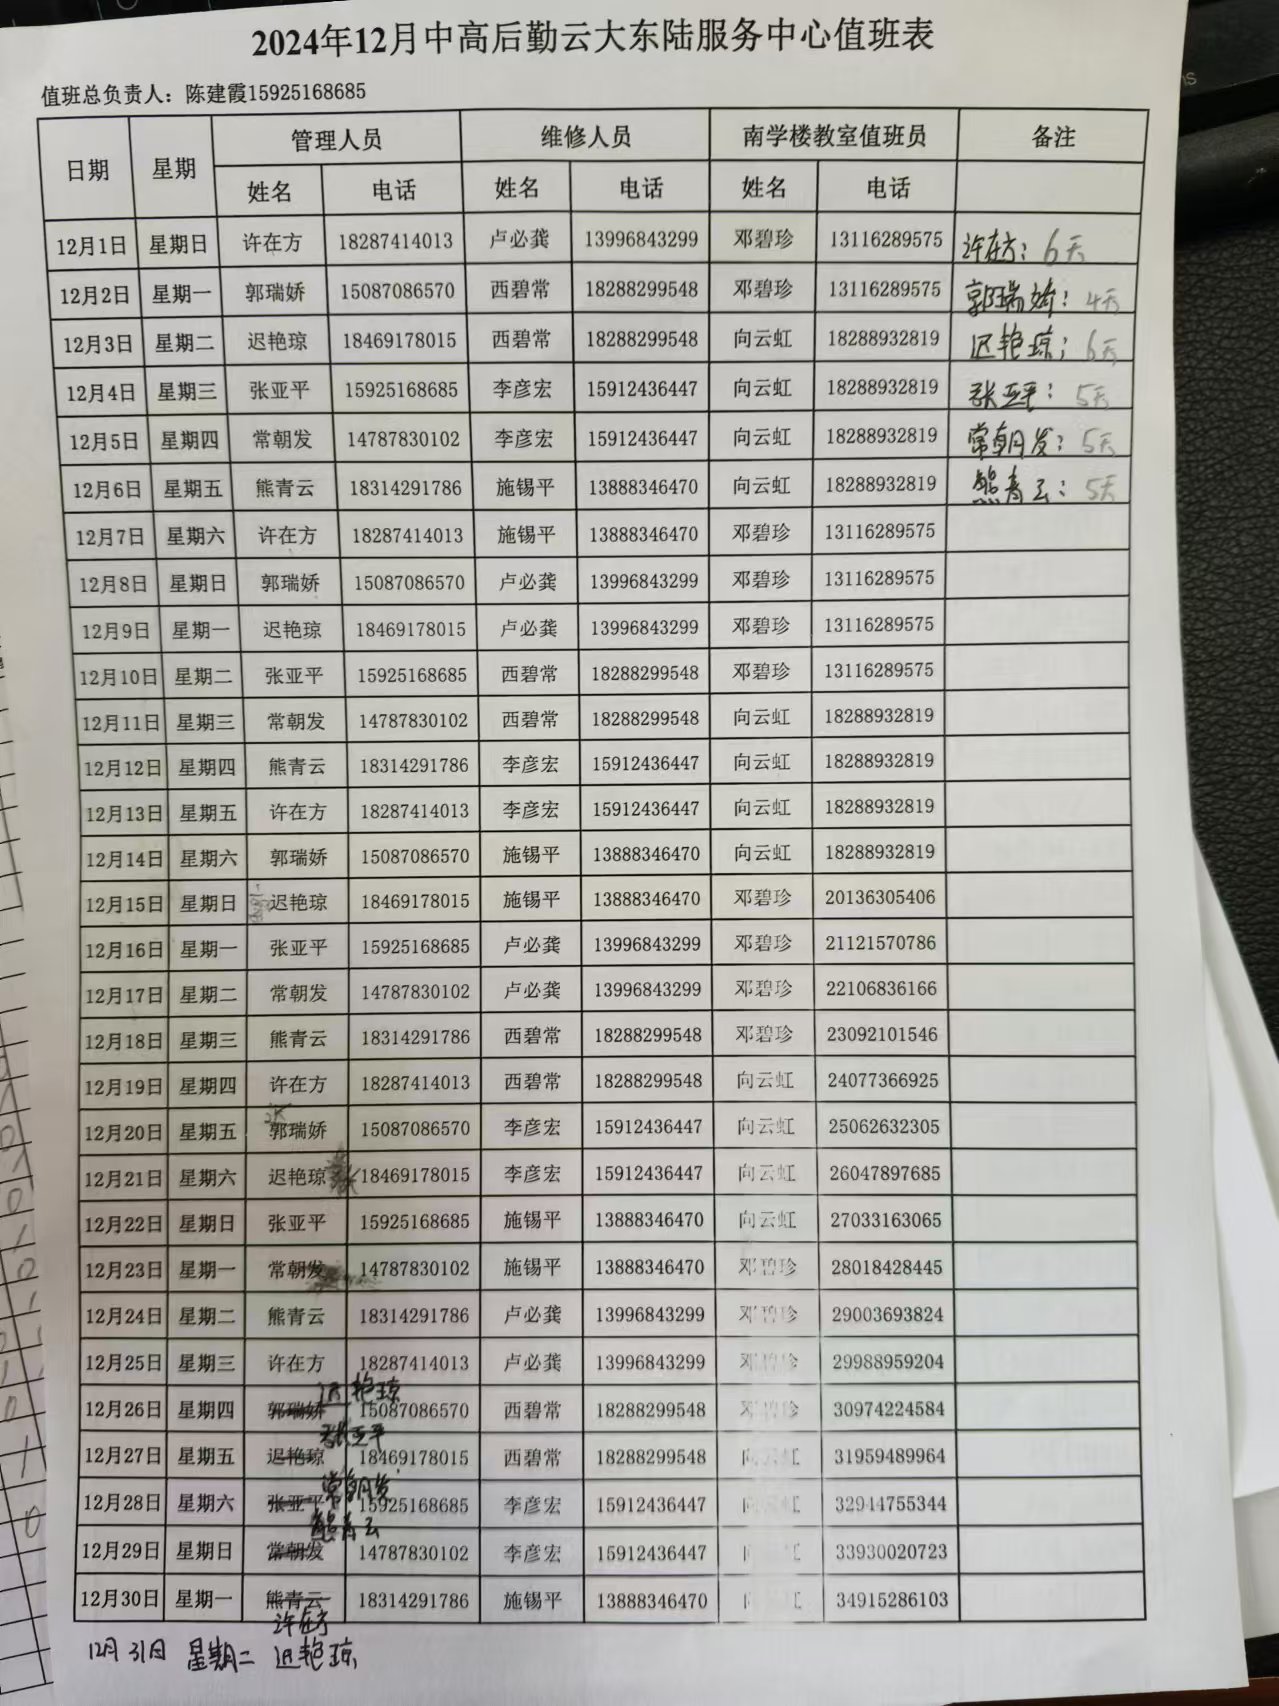 2024年12月中高后勤云大东陆服务中心值班表
值班总负责人：陈建霞15925168685
日期 星期 管理人员 维修人员 南学楼教室值班员 备注
姓名 电话 姓名 电话 姓名 电话
12月1日 星期日 许在方 18287414013 卢必龚 13996843299 邓碧珍 13116289575 许在方：6天
12月2日 星期一 郭瑞娇 15087086570 西碧常 18288299548 邓碧珍 13116289575 郭瑞娇：4天
12月3日 星期二 迟艳琼 18469178015 西碧常 18288299548 向云虹 18288932819 迟艳琼：6天
12月4日 星期三 张亚平 15925168685 李彦宏 15912436447 向云虹 18288932819 张亚平：5天
12月5日 星期四 常朝发 14787830102 李彦宏 15912436447 向云虹 18288932819 常朝发：5天
12月6日 星期五 熊青云 18314291786 施锡平 13888346470 向云虹 18288932819 熊青云：5天
12月7日 星期六 许在方 18287414013 施锡平 13888346470 邓碧珍 13116289575
12月8日 星期日 郭瑞娇 15087086570 卢必龚 13996843299 邓碧珍 13116289575
12月9日 星期一 迟艳琼 18469178015 卢必龚 13996843299 邓碧珍 13116289575
12月10日 星期二 张亚平 15925168685 西碧常 18288299548 邓碧珍 13116289575
12月11日 星期三 常朝发 14787830102 西碧常 18288299548 向云虹 18288932819
12月12日 星期四 熊青云 18314291786 李彦宏 15912436447 向云虹 18288932819
12月13日 星期五 许在方 18287414013 李彦宏 15912436447 向云虹 18288932819
12月14日 星期六 郭瑞娇 15087086570 施锡平 13888346470 向云虹 18288932819
12月15日 星期日 迟艳琼 18469178015 施锡平 13888346470 邓碧珍 20136305406
12月16日 星期一 张亚平 15925168685 卢必龚 13996843299 邓碧珍 21121570786
12月17日 星期二 常朝发 14787830102 卢必龚 13996843299 邓碧珍 22106836166
12月18日 星期三 熊青云 18314291786 西碧常 18288299548 邓碧珍 23092101546
12月19日 星期四 许在方 18287414013 西碧常 18288299548 向云虹 24077366925
12月20日 星期五 郭瑞娇 15087086570 李彦宏 15912436447 向云虹 25062632305
12月21日 星期六 迟艳琼 18469178015 李彦宏 15912436447 向云虹 26047897685
12月22日 星期日 张亚平 15925168685 施锡平 13888346470 向云虹 27033163065
12月23日 星期一 常朝发 14787830102 施锡平 13888346470 邓碧珍 28018428445
12月24日 星期二 熊青云 18314291786 卢必龚 13996843299 邓碧珍 29003693824
12月25日 星期三 许在方 18287414013 卢必龚 13996843299 邓碧珍 29988959204
迟艳琼
12月26日 星期四 郭瑞娇 15087086570 西碧常 18288299548 邓碧珍 30974224584
张亚平
12月27日 星期五 迟艳琼 18469178015 西碧常 18288299548 31959489964
常朝发
12月28日 星期六 张亚平 15925168685 李彦宏 15912436447 32944755344
熊青云
12月29日 星期日 常朝发 14787830102 李彦宏 15912436447 33930020723
12月30日 星期一 熊青云 18314291786 施锡平 13888346470 34915286103
许在方
12月31日 星期二 迟艳琼